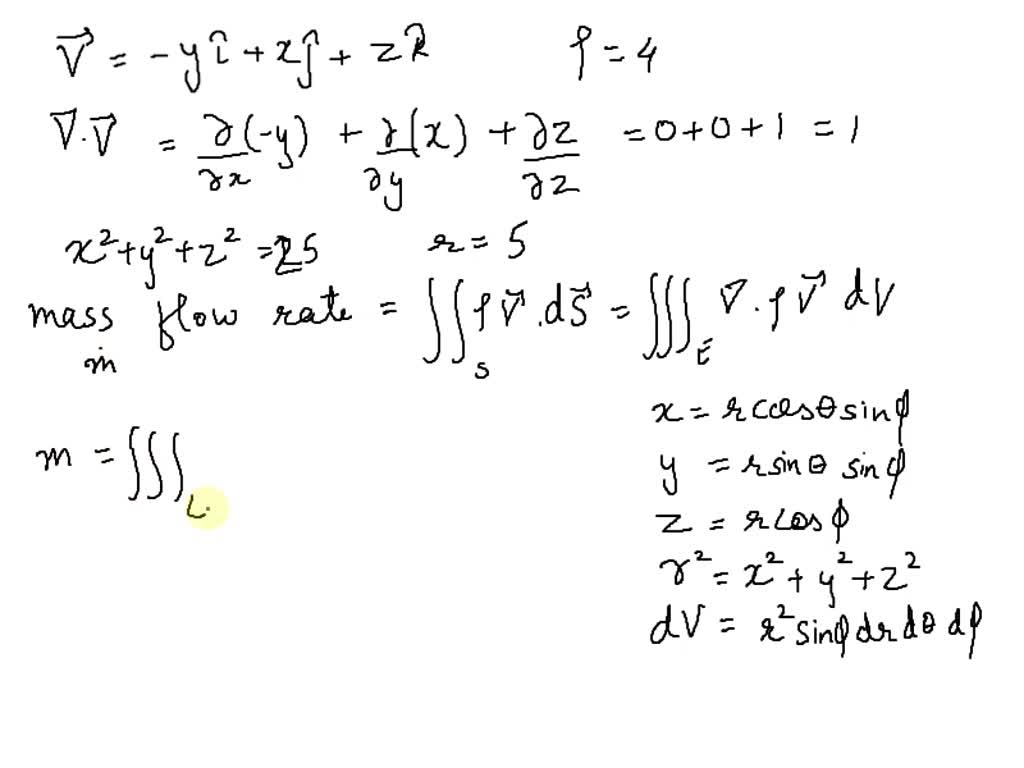 V⃗ = -yî + xĵ + zk̂    ρ = 4
∇·V⃗ = ∂(-y)/∂x + ∂(x)/∂y + ∂z/∂z = 0+0+1 = 1
x²+y²+z² = 25    r = 5
mass flow rate = ∬_S ρV⃗.dS⃗ = ∭_E ∇.ρV⃗ dV
ṁ
x = rcosθsinφ
m = ∭
y = rsinθ sinφ
z = rcosφ
r² = x²+y²+z²
dV = r²sinφdrdθdφ